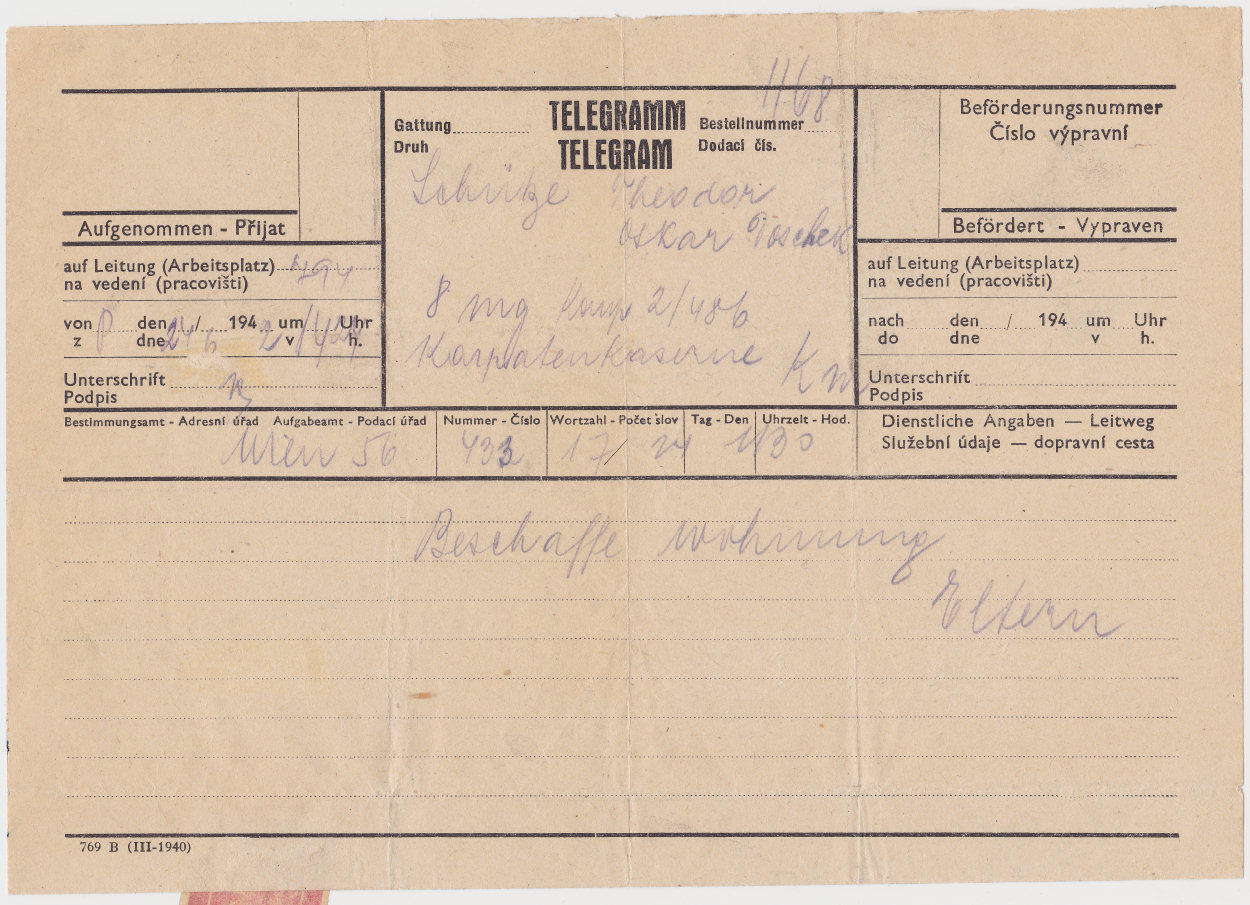 1168
Gattung TELEGRAMM Bestellnummer
Druh TELEGRAM Dodací čís.
Beförderungsnummer
Číslo výpravní
Schütze Theodor
Oskar Töschek
Aufgenommen - Přijat
Befördert - Vypraven
auf Leitung (Arbeitsplatz)
na vedení (pracovišti)
auf Leitung (Arbeitsplatz)
na vedení (pracovišti)
8 mg Komp 2/486
Karpatenkaserne
von P den 24/6 194 2 um Uhr
z dne v h.
nach den / 194 um Uhr
do dne v h.
Unterschrift
Podpis
Unterschrift
Podpis
Bestimmungsamt - Adresní úřad Aufgabeamt - Podací úřad Nummer - Číslo Wortzahl - Počet slov Tag - Den Uhrzeit - Hod.
Dienstliche Angaben — Leitweg
Služební údaje — dopravní cesta
Wien 56 433 17/ 24 1130
Beschaffe Wohnung
Eltern
769 B (III-1940)